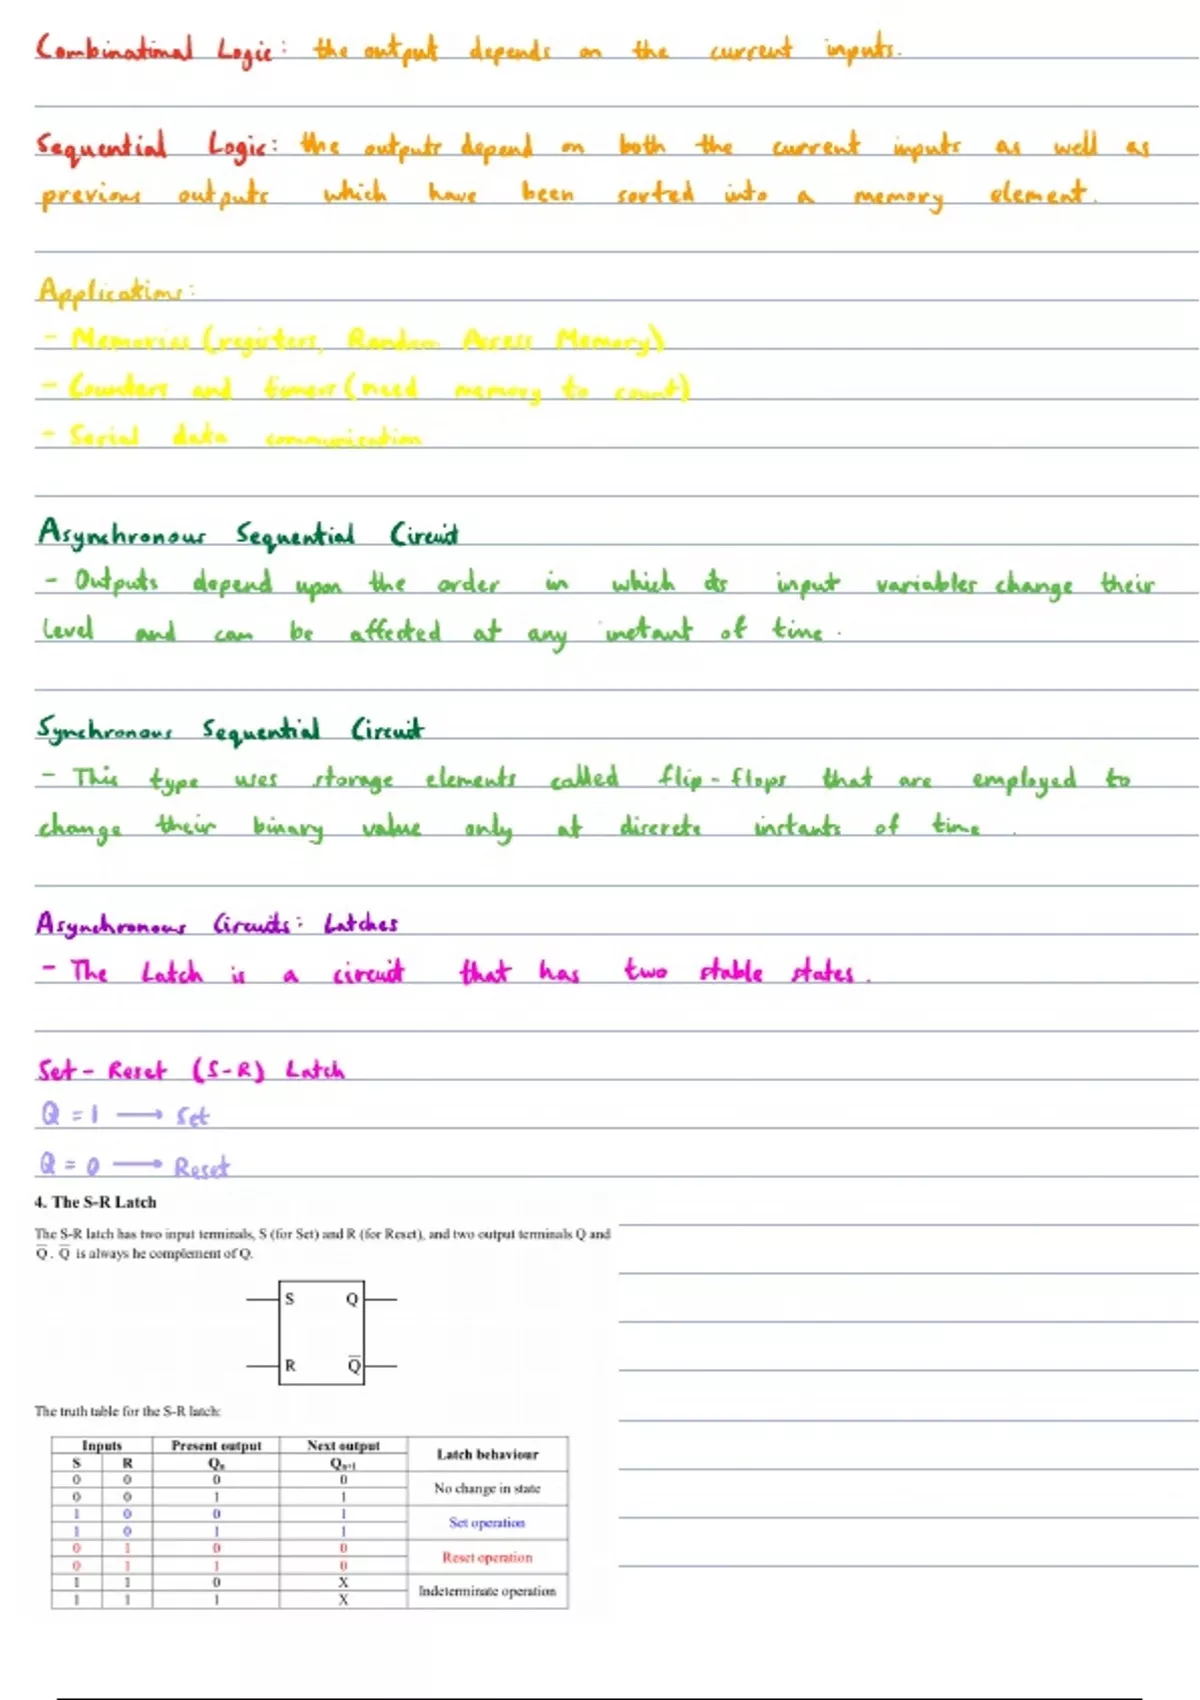 Combinational Logic: the output depends on the current inputs.
Sequential Logic: the outputs depend on both the current inputs as well as
previous outputs which have been sorted into a memory element.
Applications:
- Memories (registers, Random Access Memory)
- Counters and timers (need memory to count)
- Serial data communication
Asynchronous Sequential Circuit
- Outputs depend upon the order in which its input variables change their
level and can be affected at any instant of time.
Synchronous Sequential Circuit
- This type uses storage elements called flip-flops that are employed to
change their binary value only at discrete instants of time.
Asynchronous Circuits: Latches
- The Latch is a circuit that has two stable states.
Set-Reset (S-R) Latch
Q = 1 → Set
Q = 0 → Reset
4. The S-R Latch
The S-R latch has two input terminals, S (for Set) and R (for Reset), and two output terminals Q and
Q̅. Q̅ is always he complement of Q.
S Q
R Q̅
The truth table for the S-R latch:
Inputs Present output Next output Latch behaviour
S R Qn Qn+1
0 0 0 0 No change in state
0 0 1 1
1 0 0 1 Set operation
1 0 1 1
0 1 0 0 Reset operation
0 1 1 0
1 1 0 X Indeterminate operation
1 1 1 X